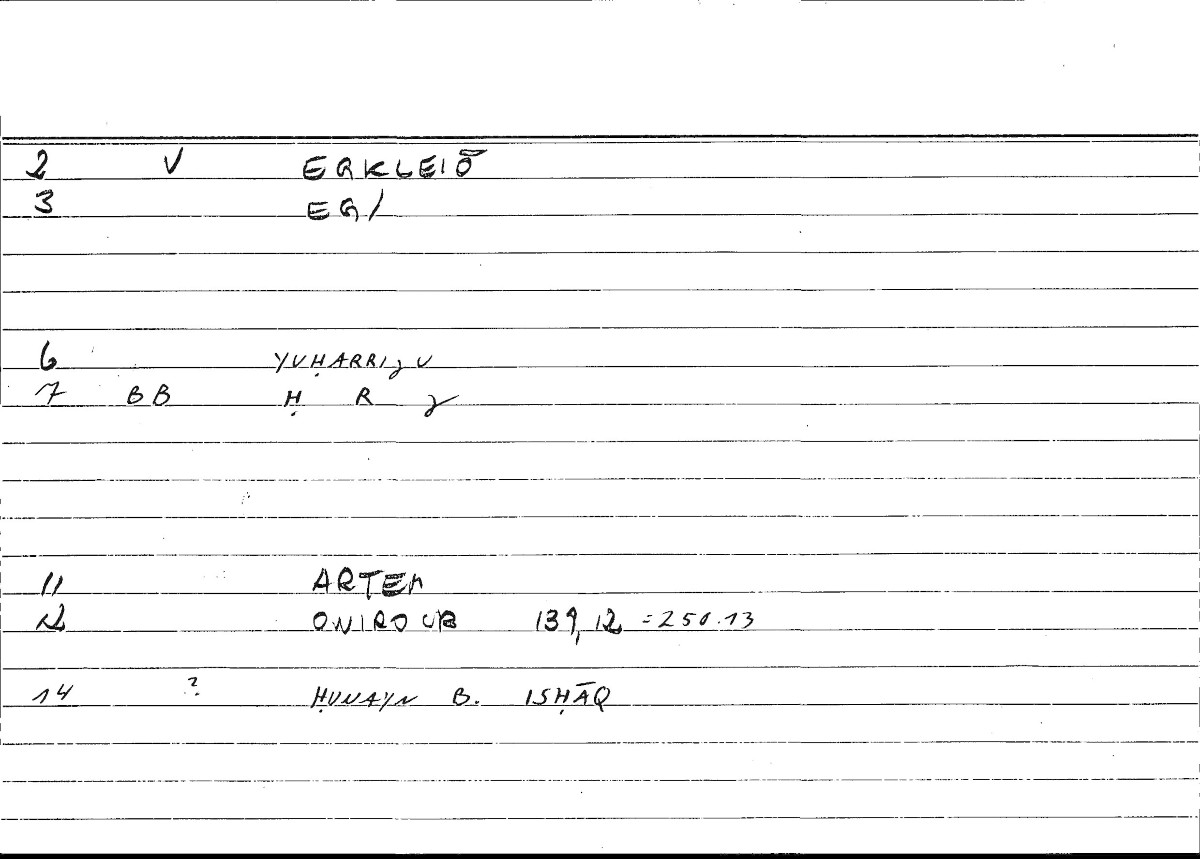 2 V EGKLEIŌ
3 EG/
6 YUḤARRIZU
7 BB Ḥ R Z
11 ARTEM
12 ONIROCR 139,12 = 250.13
14 ? ḤUNAYN B. ISḤĀQ